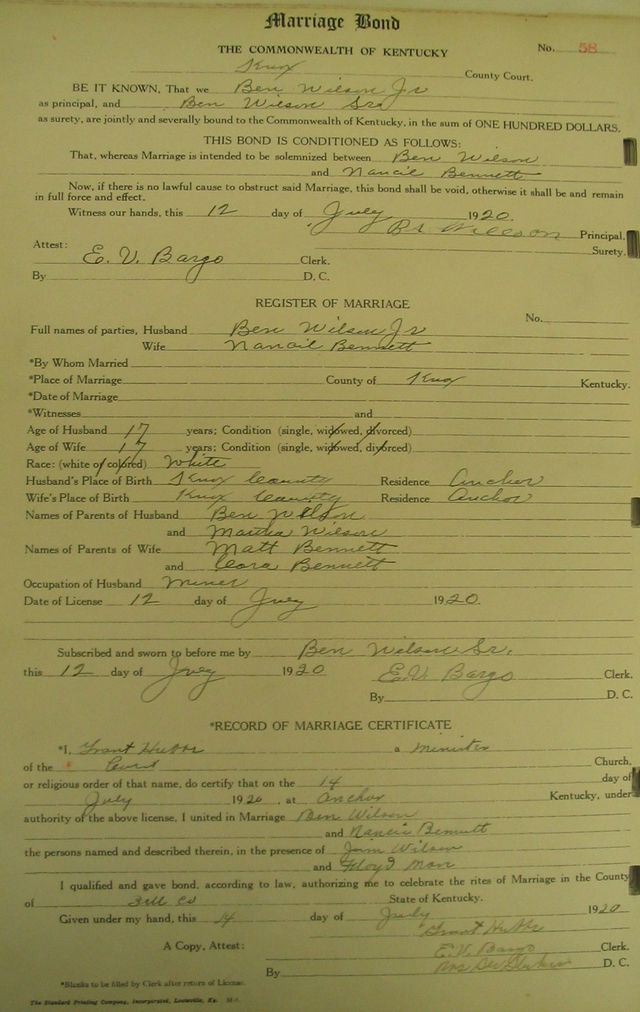 Marriage Bond
THE COMMONWEALTH OF KENTUCKY No. 58
Knox County Court.
BE IT KNOWN, That we Ben Wilson Jr
as principal, and Ben Wilson Sr
as surety, are jointly and severally bound to the Commonwealth of Kentucky, in the sum of ONE HUNDRED DOLLARS.
THIS BOND IS CONDITIONED AS FOLLOWS:
That, whereas Marriage is intended to be solemnized between Ben Wilson
and Nancie Bennett
Now, if there is no lawful cause to obstruct said Marriage, this bond shall be void, otherwise it shall be and remain
in full force and effect.
Witness our hands, this 12 day of July 1920.
Willson Principal,
Surety.
Attest: E. V. Bargo Clerk.
By D. C.
REGISTER OF MARRIAGE
No.
Full names of parties, Husband Ben Wilson Jr
Wife Nancie Bennett
*By Whom Married
*Place of Marriage County of Knox Kentucky.
*Date of Marriage
*Witnesses and
Age of Husband 17 years; Condition (single, widowed, divorced)
Age of Wife 17 years; Condition (single, widowed, divorced)
Race: (white or colored) White
Husband's Place of Birth Knox County Residence Anchor
Wife's Place of Birth Knox County Residence Anchor
Names of Parents of Husband Ben Wilson
and Martha Wilson
Names of Parents of Wife Matt Bennett
and Cora Bennett
Occupation of Husband Miner
Date of License 12 day of July 1920.
Subscribed and sworn to before me by Ben Wilson Sr.
this 12 day of July 1920 E.V. Bargo Clerk.
By D. C.
*RECORD OF MARRIAGE CERTIFICATE
*I, Grant Hubbs a minister
of the Church,
or religious order of that name, do certify that on the 14 day of
July 1920, at Anchor Kentucky, under
authority of the above license, I united in Marriage Ben Wilson
and Nancie Bennett
the persons named and described therein, in the presence of Jim Wilson
and Floyd
I qualified and gave bond, according to law, authorizing me to celebrate the rites of Marriage in the County
of Bell Co State of Kentucky.
Given under my hand, this 14 day of July 1920
Grant Hubbs
A Copy, Attest: E.V. Bargo Clerk.
By D. C.
*Blanks to be filled by Clerk after return of License.
The Standard Printing Company, Incorporated, Louisville, Ky.